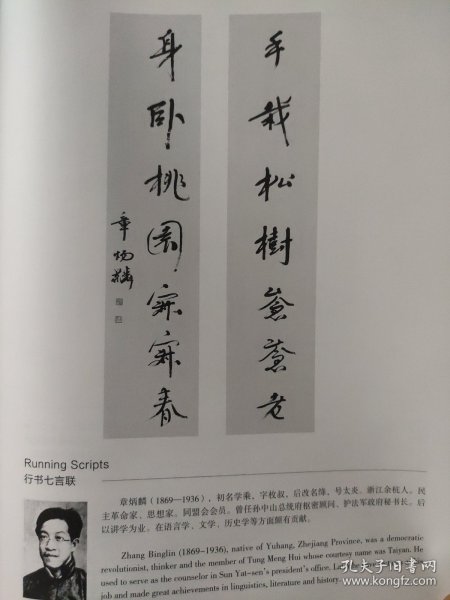 手栽松樹蒼蒼老
身卧桃園寂寂春
章炳麟
Running Scripts
行书七言联
章炳麟(1869—1936),初名学乘,字枚叔,后改名绛,号太炎。浙江余杭人。民
主革命家、思想家。同盟会会员。曾任孙中山总统府枢密顾问、护法军政府秘书长。后
以讲学为业。在语言学、文学、历史学等方面颇有贡献。
Zhang Binglin (1869-1936), native of Yuhang, Zhejiang Province, was a democratic
revolutionist, thinker and the member of Tung Meng Hui whose courtesy name was Taiyan. He
used to serve as the counselor in Sun Yat-sen's president's office.
job and made great achievements in linguistics, literature and history
孔夫子旧书网
www.kongfz.com